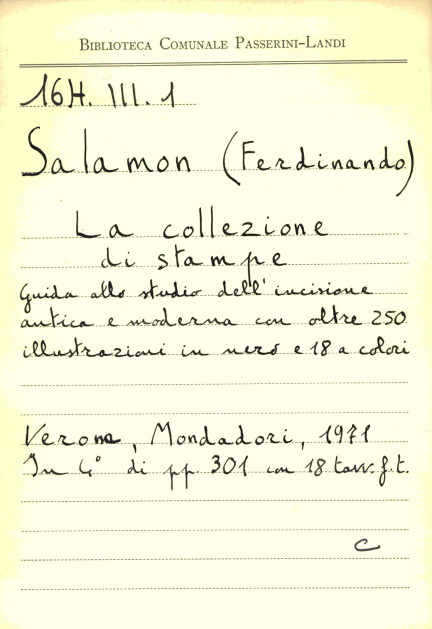 BIBLIOTECA COMUNALE PASSERINI-LANDI
16H. III. 1
Salamon (Ferdinando)
La collezione
di stampe
Guida allo studio dell'incisione
antica e moderna con oltre 250
illustrazioni in nero e 18 a colori
Verona, Mondadori, 1971
In 4° di pp. 301 con 18 tavv. f. t.
C